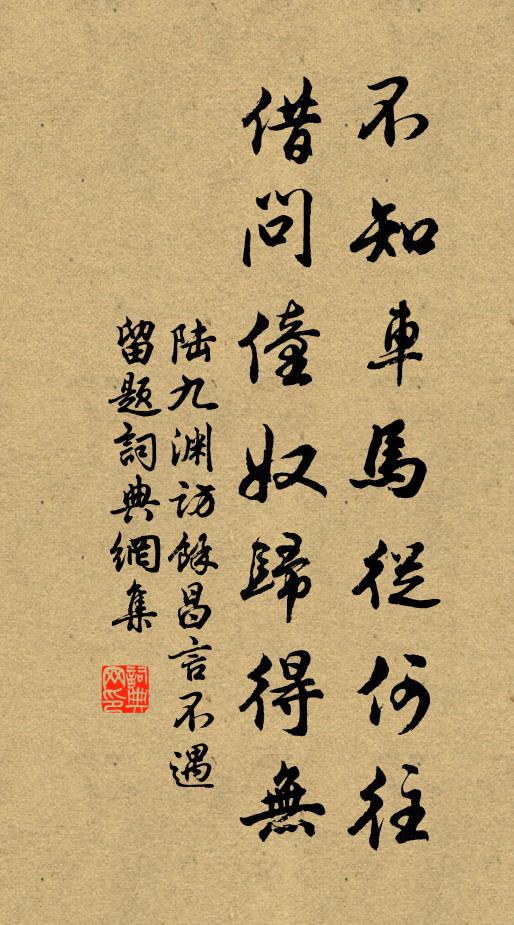 不知車馬從何往
借問僮奴歸得無
陸九淵訪餘昌言不遇
留題詞典網集
詞典
网印